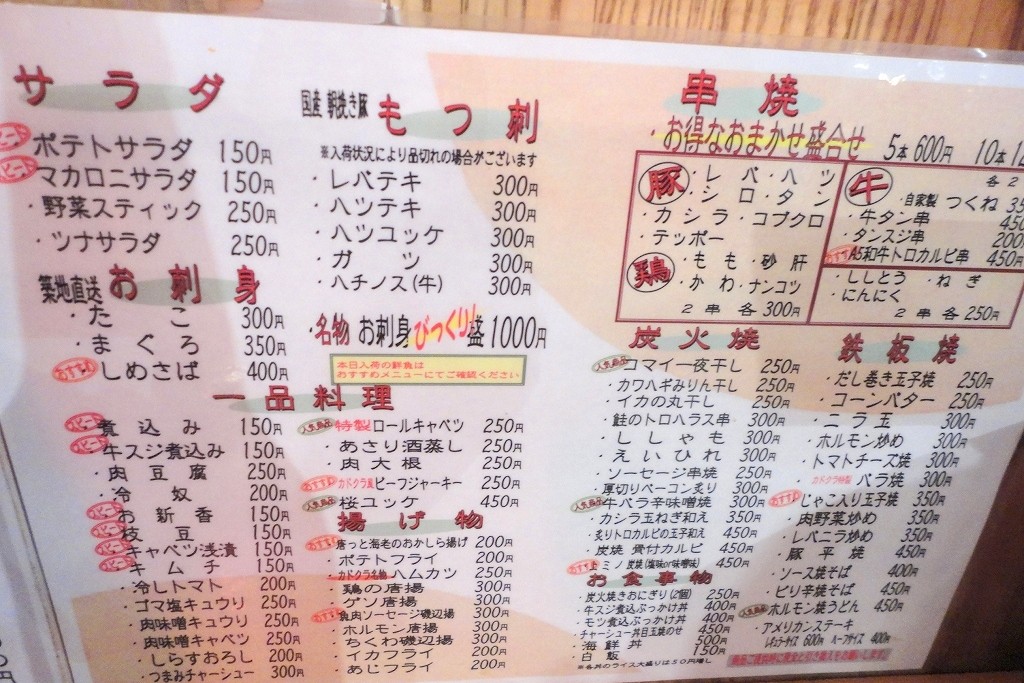 サラダ
スピード ポテトサラダ 150円
スピード マカロニサラダ 150円
・野菜スティック 250円
・ツナサラダ 250円
築地直送 お刺身
・たこ 300円
・まぐろ 350円
おすすめ しめさば 400円
国産 朝挽き豚 もつ刺
※入荷状況により品切れの場合がございます
・レバテキ 300円
・ハツテキ 300円
・ハツユッケ 300円
・ガツ 300円
・ハチノス(牛) 300円
・名物 お刺身びっくり!盛 1000円
本日入荷の鮮魚は
おすすめメニューにてご確認ください
一品料理
スピード 煮込み 150円
スピード 牛スジ煮込み 150円
・肉豆腐 250円
・冷奴 200円
スピード お新香 150円
スピード 枝豆 150円
スピード キャベツ浅漬 150円
スピード キムチ 150円
・冷しトマト 200円
・ゴマ塩キュウリ 250円
・肉味噌キュウリ 250円
・肉味噌キャベツ 250円
・しらすおろし 200円
・つまみチャーシュー 300円
人気商品 特製ロールキャベツ 250円
・あさり酒蒸し 250円
・肉大根 250円
おすすめ カドクラ風ビーフジャーキー 250円
人気商品 桜ユッケ 450円
揚げ物
おすすめ 唐っと海老のおかしら揚げ 200円
・ポテトフライ 200円
・カドクラ名物ハムカツ 250円
・鶏の唐揚 300円
・ゲソ唐揚 300円
おすすめ 魚肉ソーセージ磯辺揚 300円
・ホルモン唐揚 300円
・ちくわ磯辺揚 300円
・イカフライ 200円
・あじフライ 200円
串焼
・お得なおまかせ盛合せ 5本600円 10本12
豚 ・レバ・ハツ
・シロ・タン
・カシラ・コブクロ
・テッポー
鶏 ・もも・砂肝
・かわ・ナンコツ
2串各300円
牛 各2
・自家製つくね 35
・牛タン串 450
・タンスジ串 200円
おすすめ A5和牛トロカルビ串 450円
・ししとう ・ねぎ
・にんにく
2串各250円
炭火焼
人気商品 コマイ一夜干し 250円
・カワハギみりん干し 250円
・イカの丸干し 250円
・鮭のトロハラス串 300円
・ししゃも 300円
・えいひれ 300円
・ソーセージ串焼 250円
・厚切りベーコン炙り 300円
人気商品 牛バラ辛味噌焼 300円
・カシラ玉ねぎ和え 350円
・炙りトロカルビの玉子和え 450円
・炭焼 骨付カルビ 450円
おすすめ ミノ 炭焼(塩味or味噌味) 450円
お食事物
・炭火焼きおにぎり(2個) 250円
・牛スジ煮込ぶっかけ丼 400円
・モツ煮込ぶっかけ丼 400円
・チャーシュー丼目玉焼のせ 450円
・海鮮丼 500円
・白飯 150円
※各丼のライス大盛りは50円増し
鉄板焼
・だし巻き玉子焼 250円
・コーンバター 250円
・ニラ玉 300円
・ホルモン炒め 300円
・トマトチーズ焼 300円
・カドクラ特製 バラ焼 300円
おすすめ じゃこ入り玉子焼 350円
・肉野菜炒め 350円
・レバニラ炒め 350円
・豚平焼 450円
・ソース焼そば 400円
・ピリ辛焼そば 450円
人気商品 ホルモン焼うどん 450円
・アメリカンステーキ
レギュラーサイズ 600円 ハーフサイズ 400円
商品ご提供時に現金と引き換えをお願いします